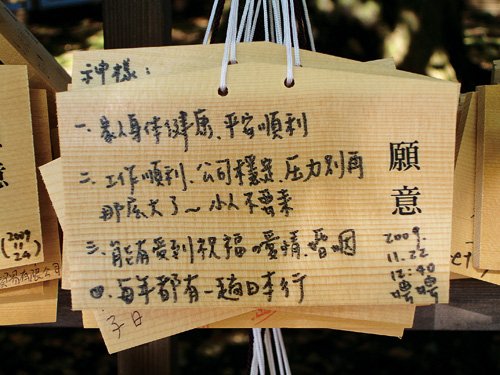 神樣：
一、家人身体健康、平安順利
二、工作順利、公司穩定、压力別再
那麼大了～小人不要來
三、能有受到祝福の愛情、婚姻
四、每年都有一趟日本行
願意
2009.
11.22
12:40
(2009
11
24)
子日